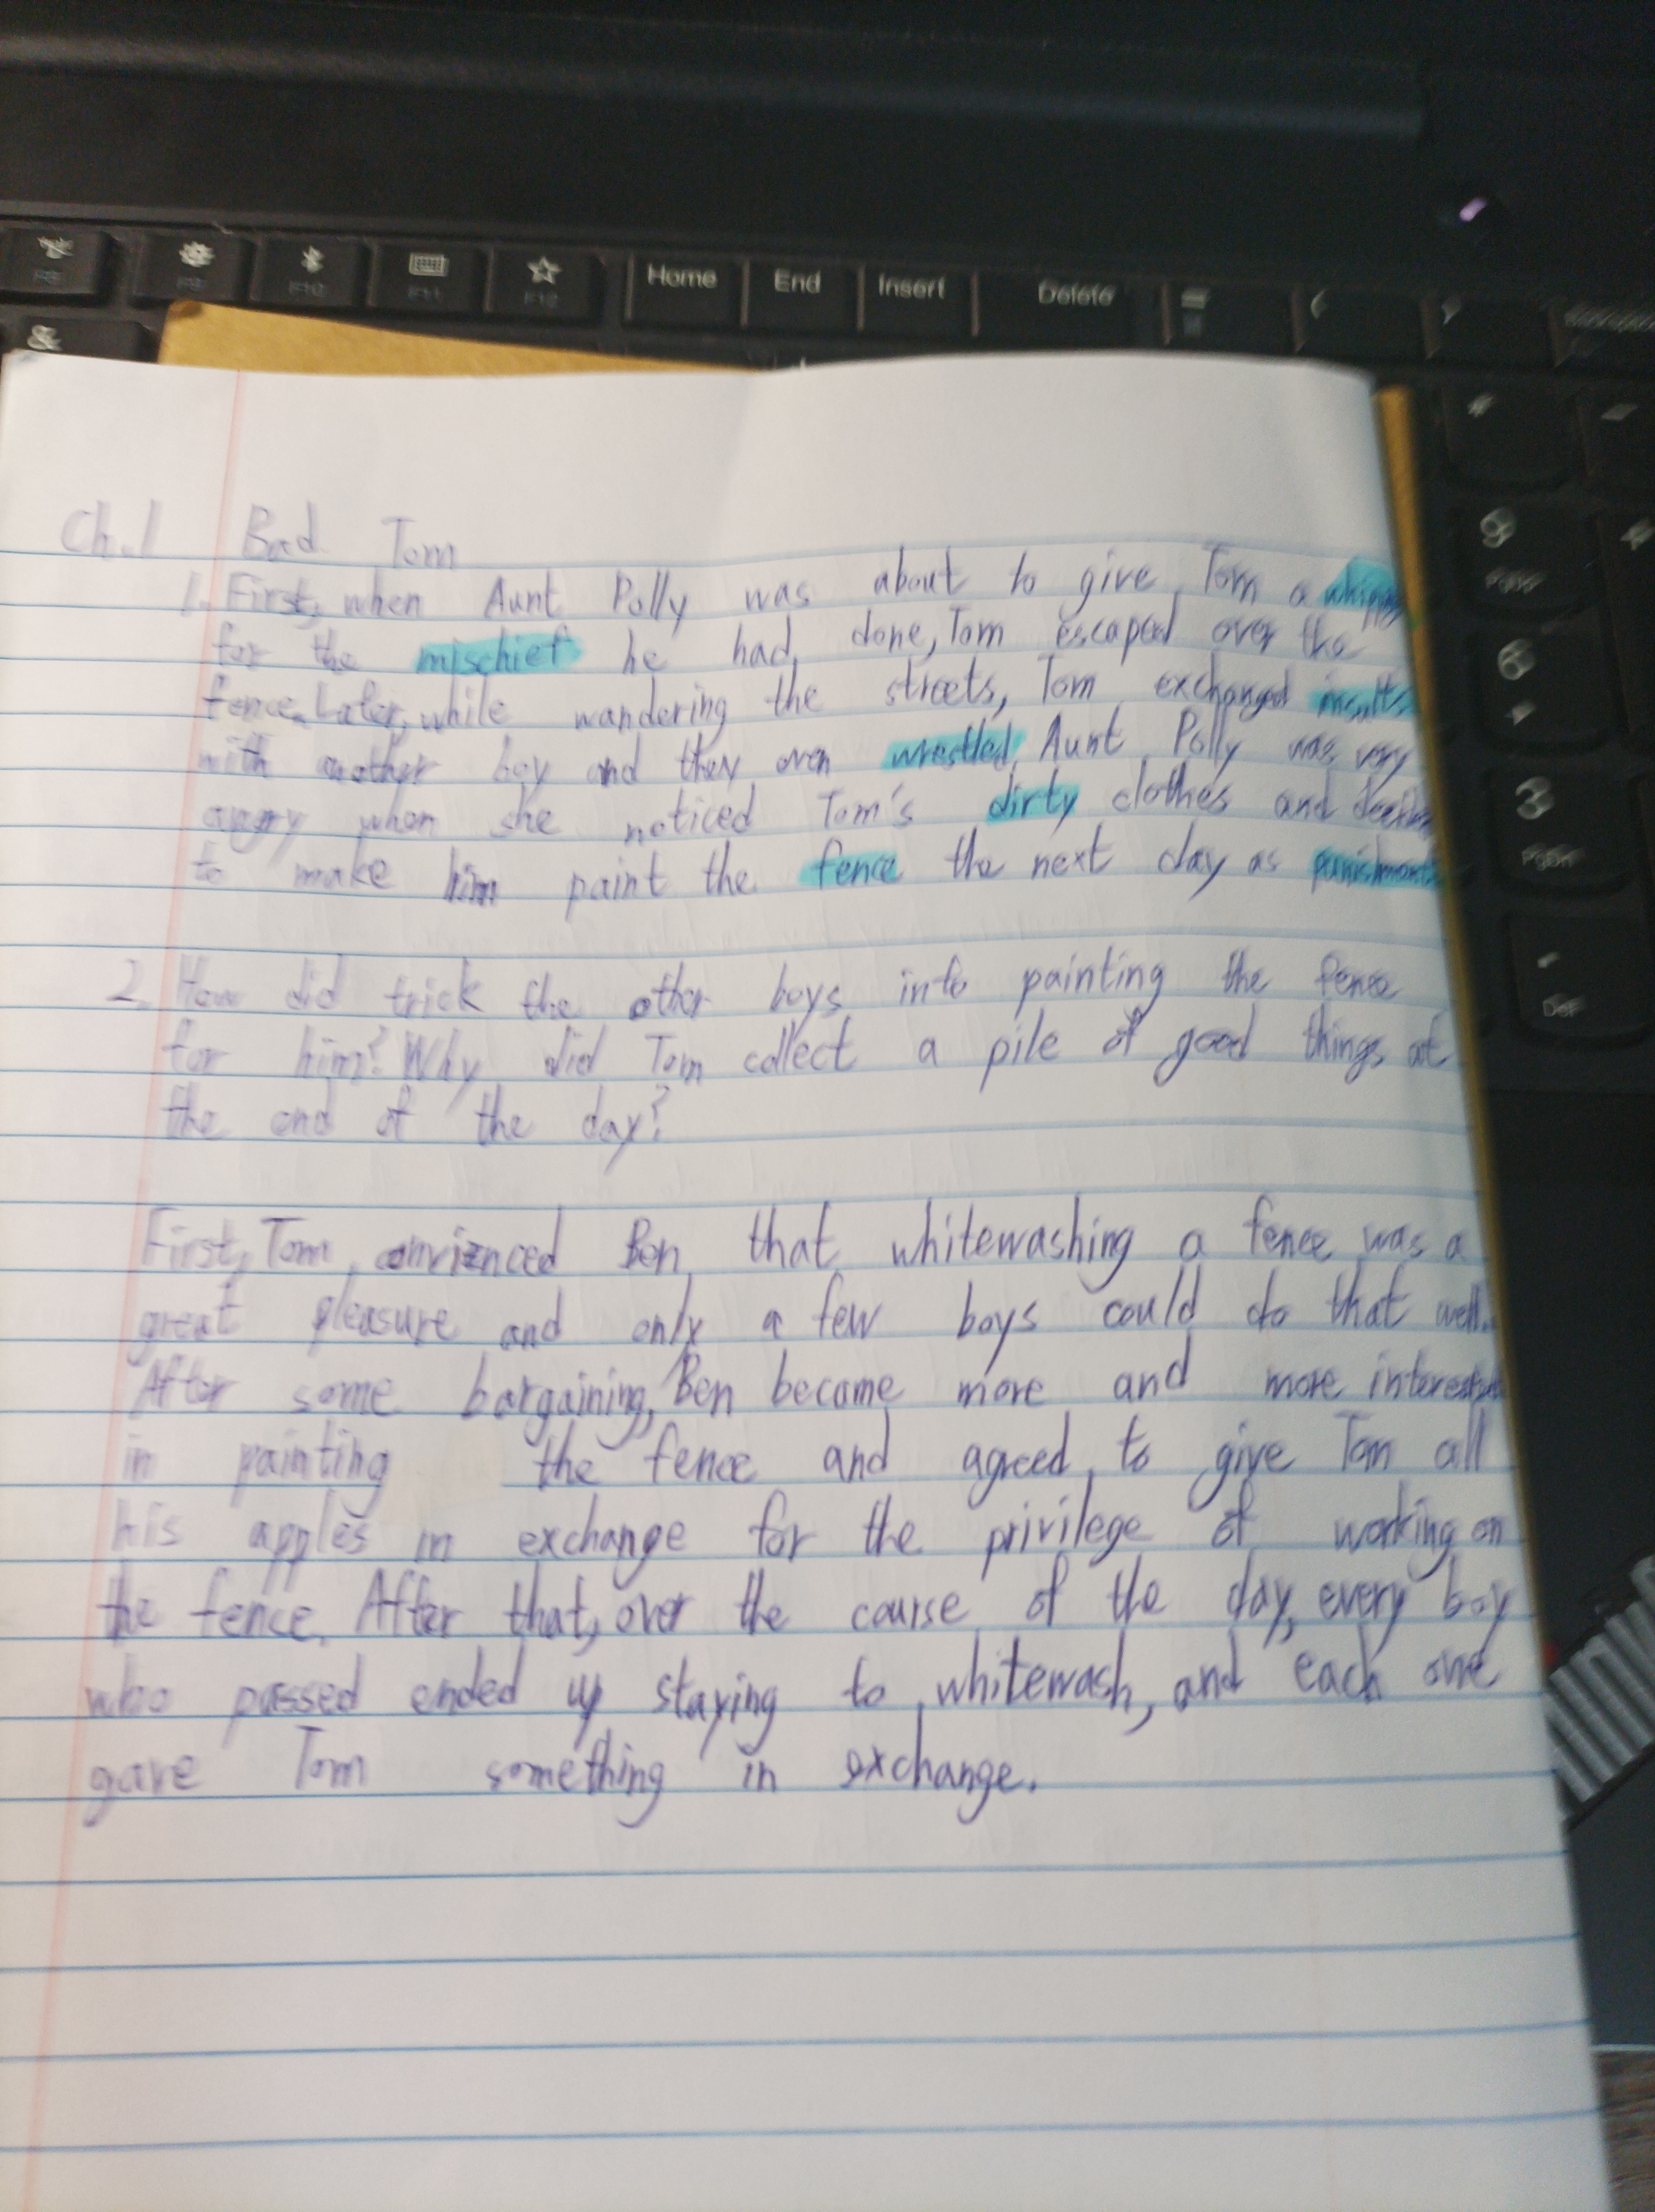 Home End Insert Delete
F9 F10 F11 F12
&
9
6
3
PgDn
Del
Ch.1 Bad Tom
1. First, when Aunt Polly was about to give Tom a
for the mischief he had done, Tom escaped over the
fence. Later, while wandering the streets, Tom exchanged insults
with another boy and they even wrestled. Aunt Polly was very
angry when she noticed Tom's dirty clothes and
to make him paint the fence the next day as punishment
2. How did trick the other boys into painting the fence
for him? Why did Tom collect a pile of good things at
the end of the day?
First, Tom convienced Ben that whitewashing a fence was a
great pleasure and only a few boys could do that well.
After some bargaining, Ben became more and more interested
in painting the fence and agreed to give Tom all
his apples in exchange for the privilege of working on
the fence. After that, over the course of the day, every boy
who passed ended up staying to whitewash, and each one
gave Tom something in exchange.